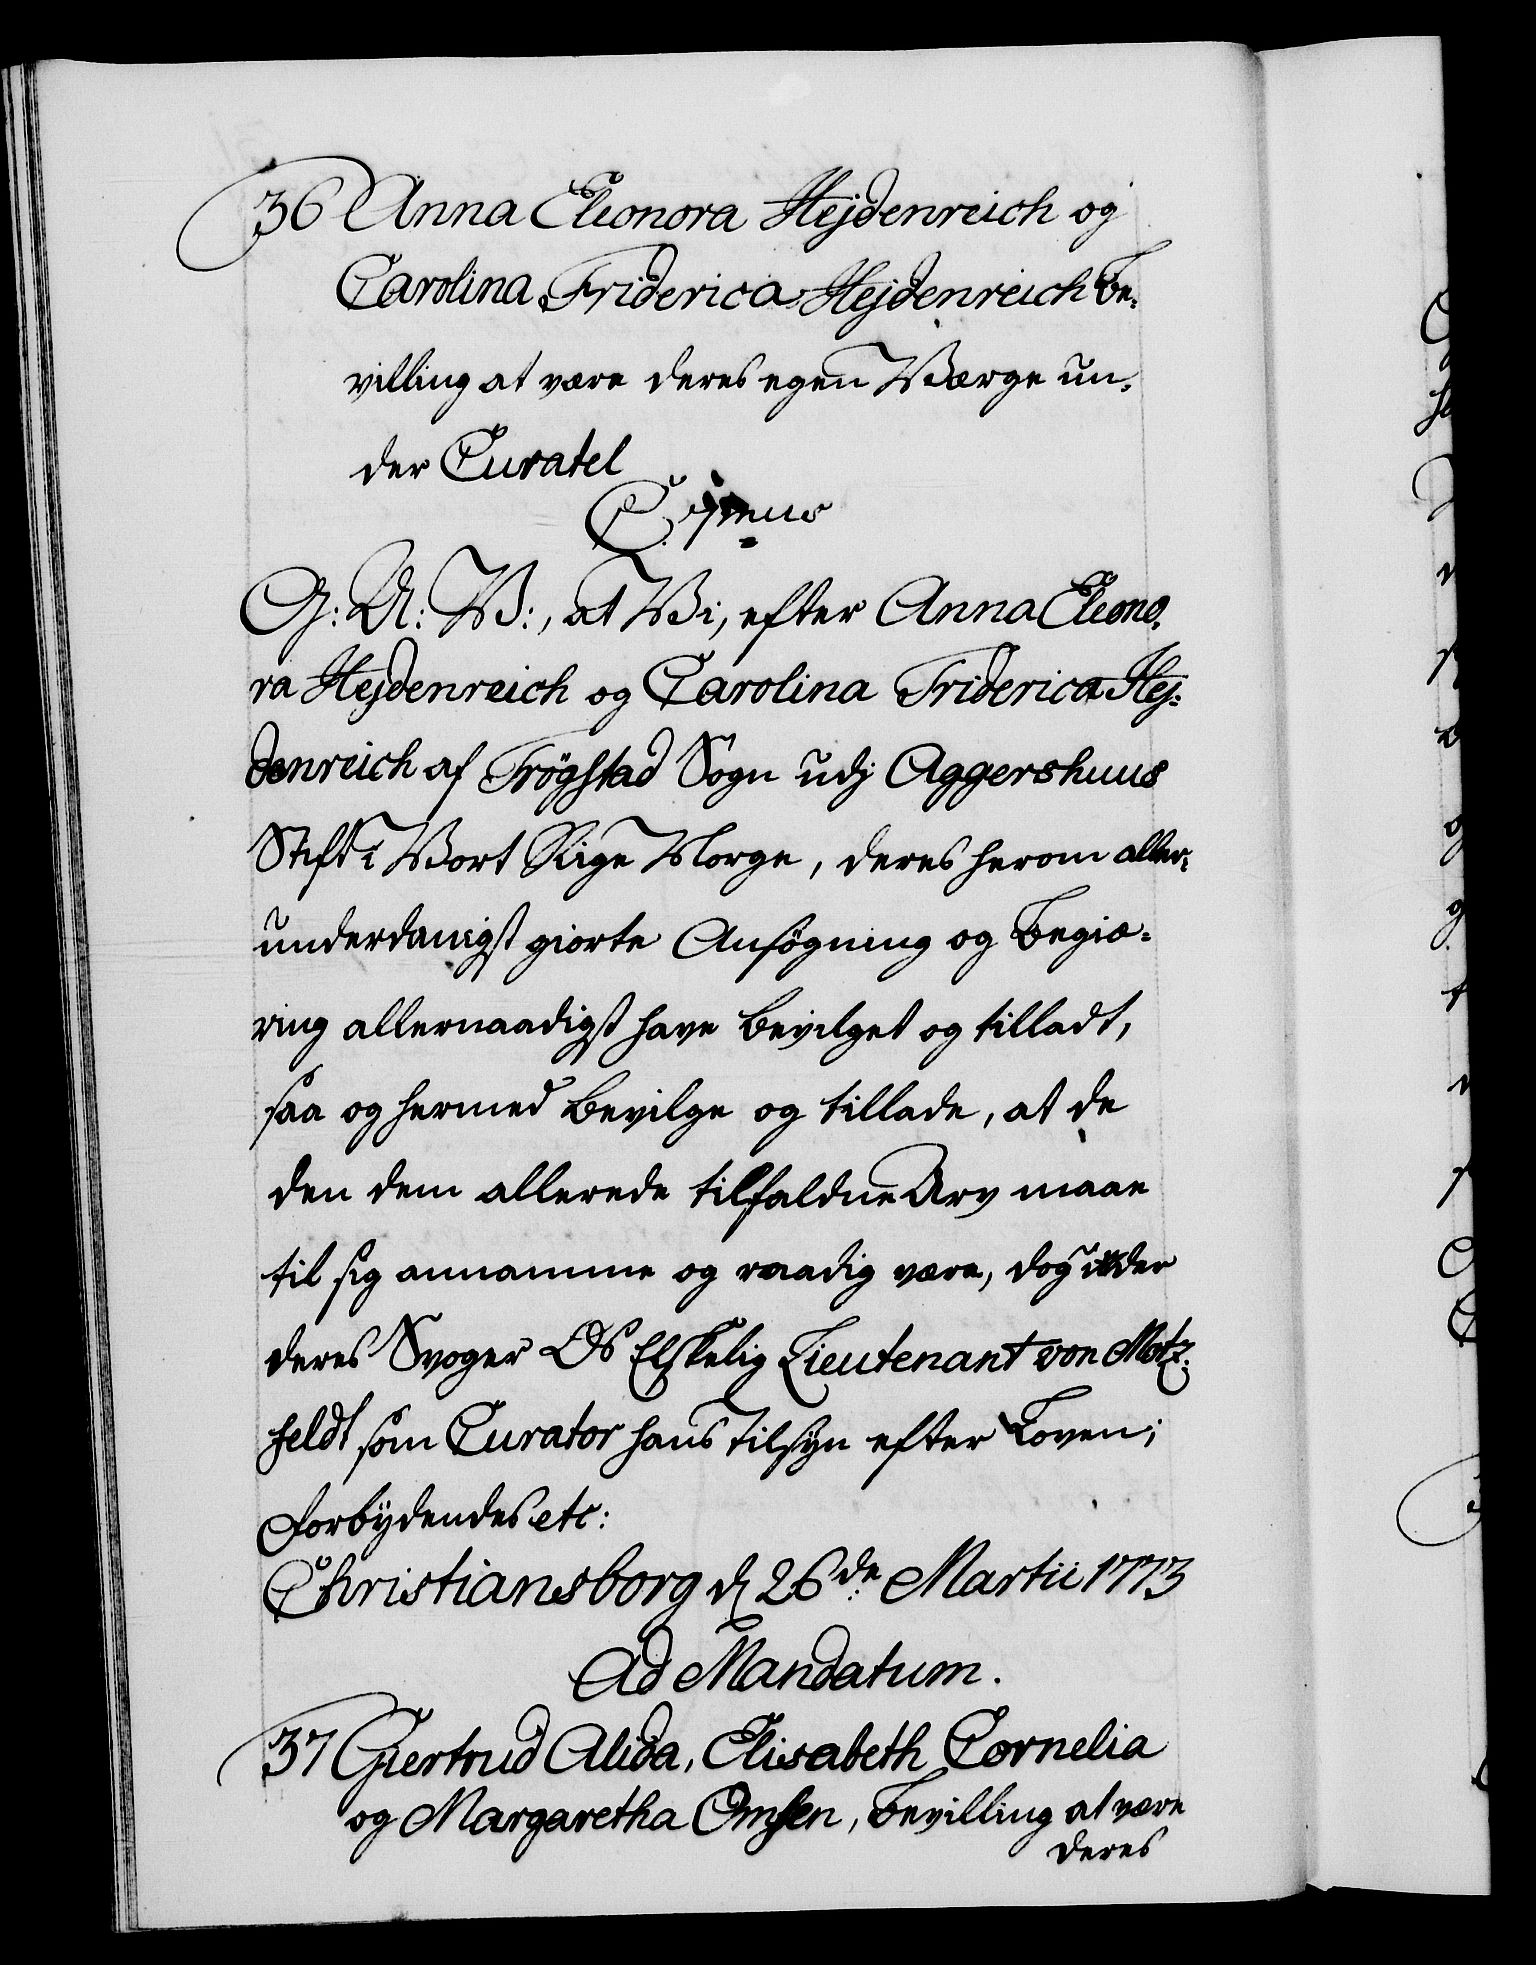 36 Anna Eleonora Hejdenreich og
Carolina Friderica Hejdenreich Be-
villing at være deres egen Værge un-
der Curatel
C. 7mus
G: A: V:, at Vi, efter Anna Eleono-
ra Hejdenreich og Carolina Friderica Hej-
denreich af Trögstad Sogn udj Aggershuus
Stift i Vort Rige Norge, deres herom aller-
underdanigst giorte Ansøgning og Begiæ-
ring allernaadigst have bevilget og tilladt,
saa og hermed bevilge og tillade, at de
den dem allerede tilfaldne Arv maae
til sig annamme og raadig være, dog under
deres Svoger Os Elskelig Lieutenant von Motz-
feldt som Curator hans Tilsyn efter Loven;
Forbydendes etc:
Christiansborg d 26de Martii 1773
Ad Mandatum.
37 Giertrud Alida, Elisabeth Cornelia
og Margaretha Omsen, Bevilling at være
deres